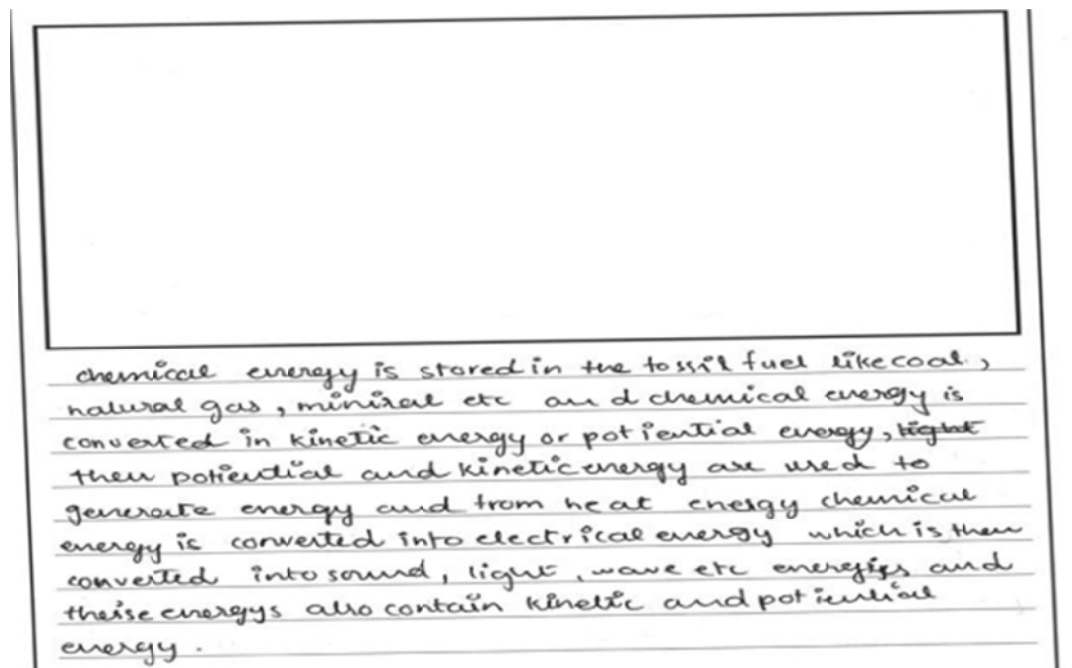 chemical energy is stored in the fossil fuel like coal,
natural gas, miniral etc and chemical energy is
converted in kinetic energy or potiential energy, light
then potiential and kinetic energy are used to
generate energy and from heat energy chemical
energy is converted into electrical energy which is then
converted into sound, light, wave etc energies and
theise energys also contain kinetic and potiential
energy.